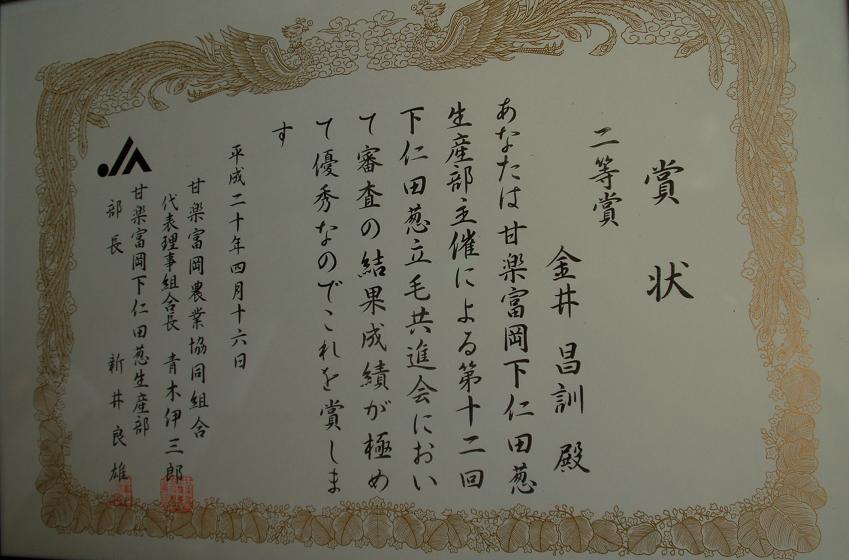 賞状
二等賞
金井昌訓殿
あなたは甘楽富岡下仁田葱
生産部主催による第十二回
下仁田葱立毛共進会におい
て審査の結果成績が極め
て優秀なのでこれを賞しま
す
平成二十年四月十六日
甘楽富岡農業協同組合
代表理事組合長 青木伊三郎
甘楽富岡下仁田葱生産部
部長 新井良雄